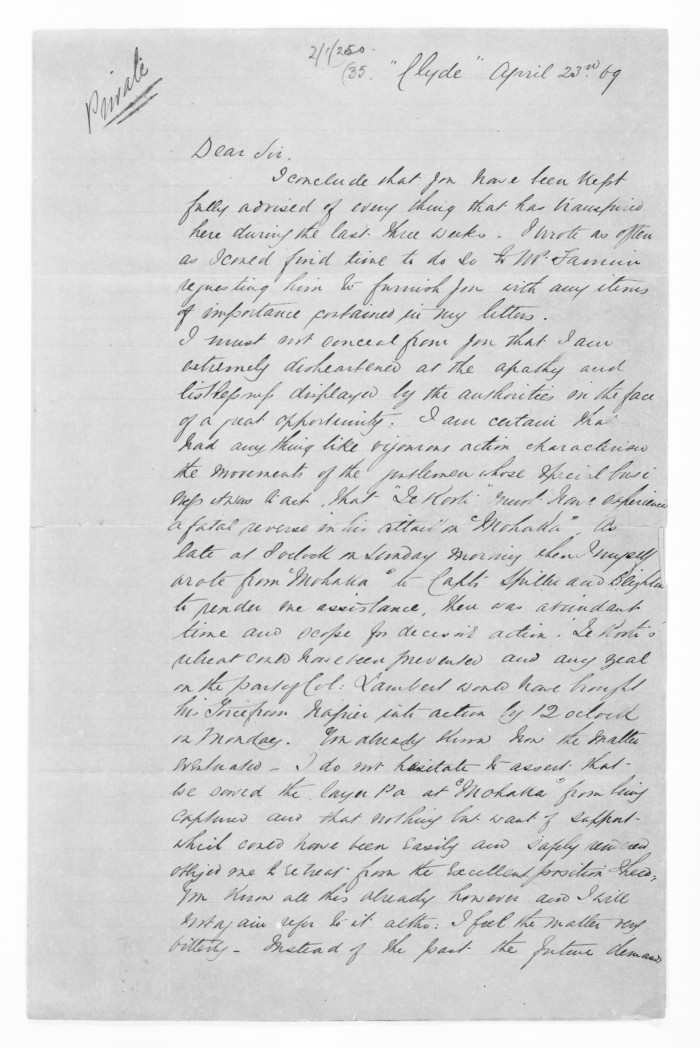 Private
2/1/250
(35. "Clyde" April 23rd 69
Dear Sir,
I conclude that you have been kept
fully advised of every thing that has transpired
here during the last three weeks. I wrote as often
as I could find time to do so to Mr.
requesting him to furnish you with any items
of importance contained in my letters.
I must not conceal from you that I am
extremely disheartened at the apathy and
listlessness displayed by the authorities in the face
of a great opportunity. I am certain that
had any thing like vigourous action characterised
the movements of the gentlemen whose special busi
ness it was to act, that "Te Kooti" must have experience
a fatal reverse in his attack on "Mohaka". As
late as 8 oclock on Sunday morning when I myself
wrote from "Mohaka" to Capts Spiller and
to render me assistance, there was abundant
time and scope for decisive action. Te Kooti's
retreat could have been prevented and any zeal
on the part of Col: Lambert would have brought
his Force from Napier into action by 12 oclock
on Monday. You already know how the matter
eventuated - I do not hesitate to assert that
we saved the large Pa at "Mohaka" from being
captured and that nothing but want of support
which could have been easily and safely rendered
obliged me to retreat from the excellent position I held;
You know all this already however and I will
not again refer to it altho: I feel the matter very
bitterly - Instead of the past the future demands